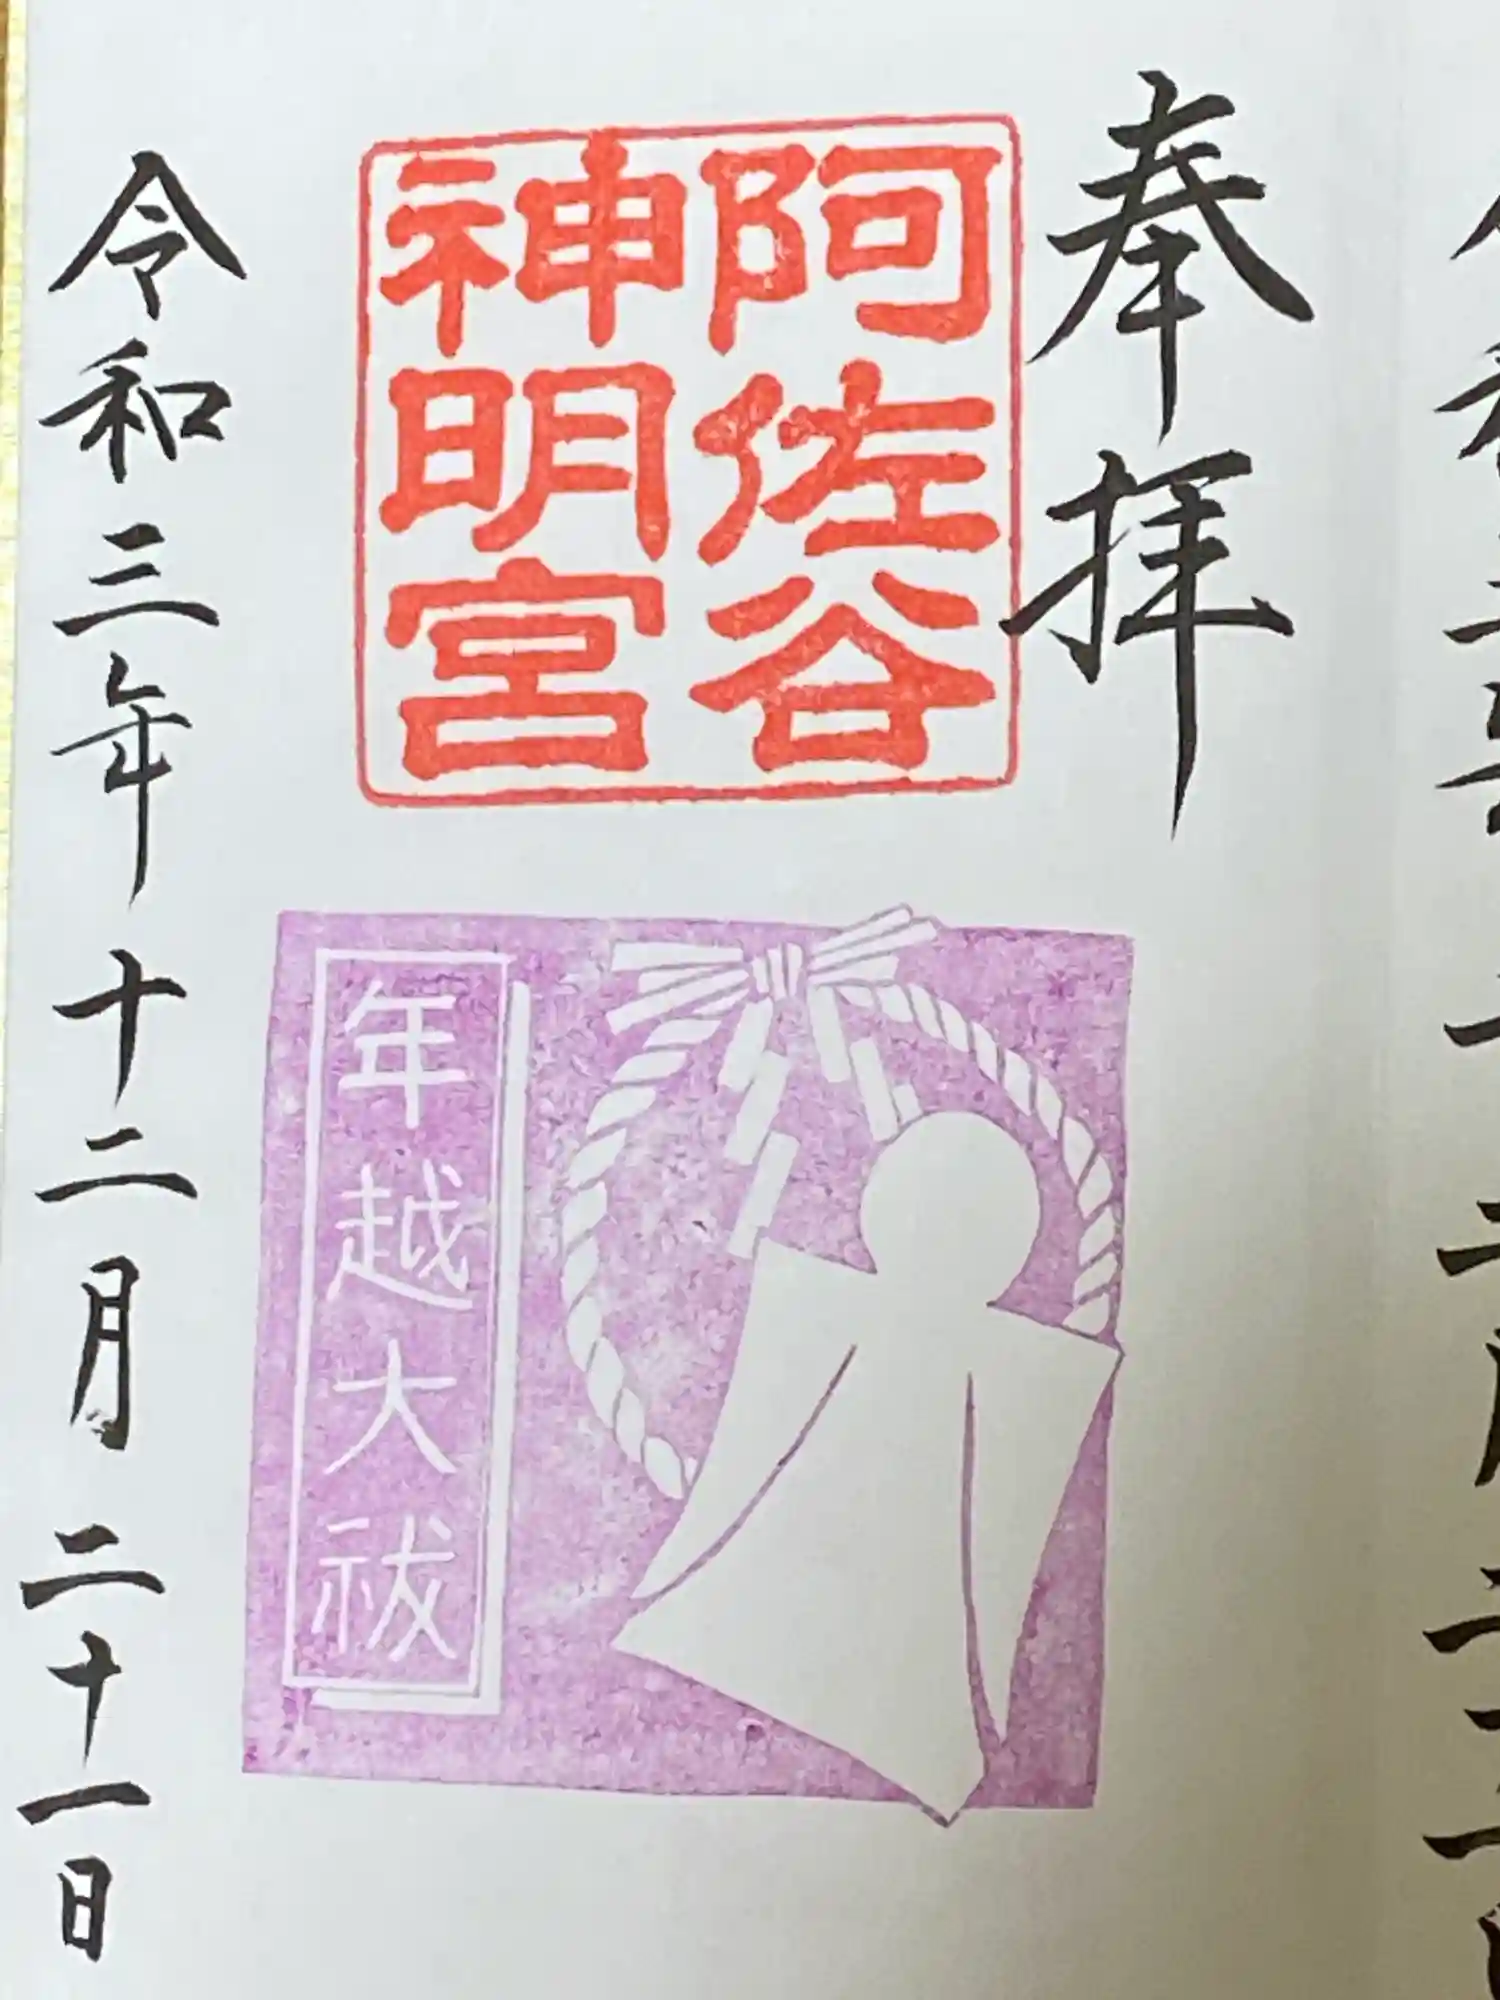 奉拝
阿佐谷
神明宮
年越大祓
令和三年十二月二十一日